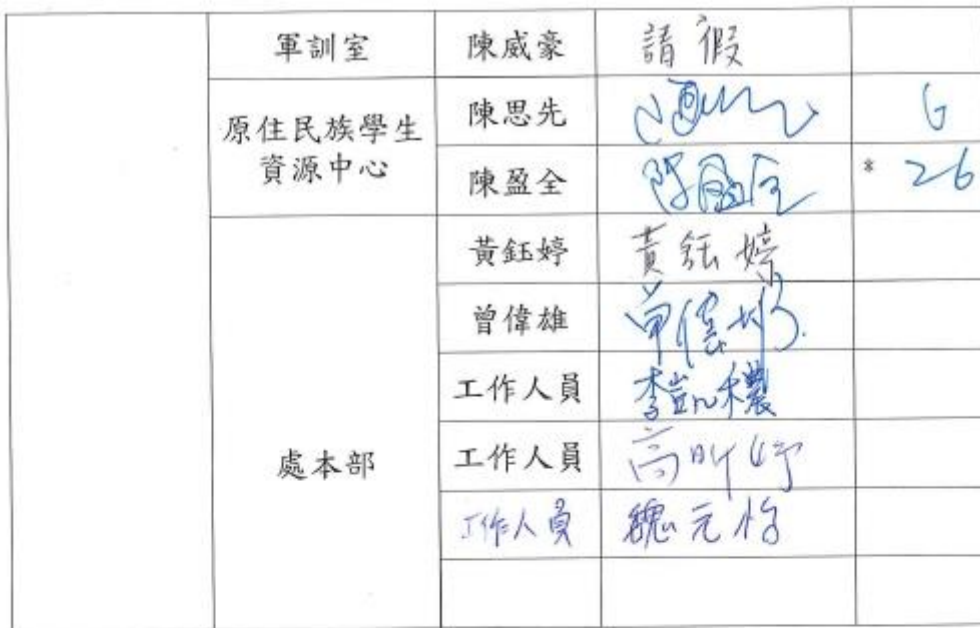 軍訓室 陳威豪 請假
原住民族學生
資源中心
陳思先 6
陳盈全 陳盈全 * 26
處本部
黃鈺婷 黃鈺婷
曾偉雄 曾偉雄
工作人員 李凱穠
工作人員 高昕妤
工作人員 魏元怡